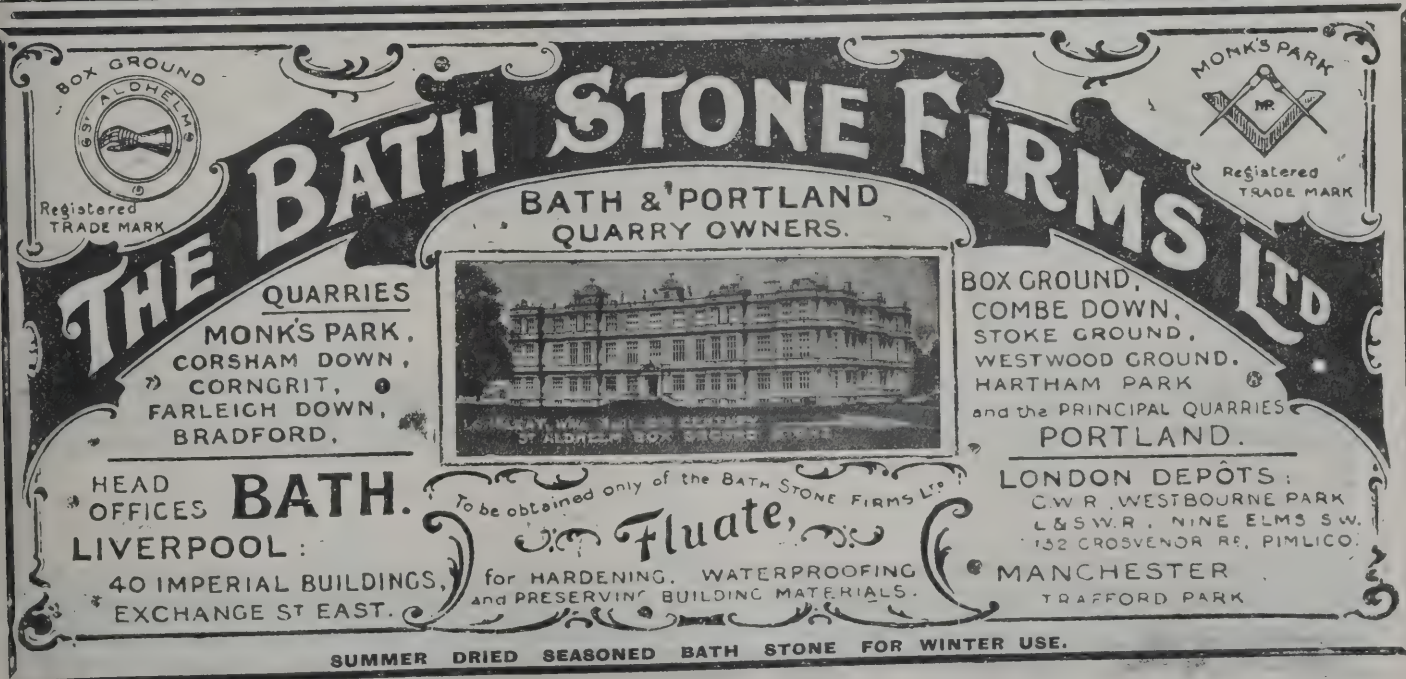 BOX GROUND
ST ALDHELM
Registered
TRADE MARK
THE BATH STONE FIRMS LTD
MONK'S PARK
MP
Registered
TRADE MARK
BATH & PORTLAND
QUARRY OWNERS.
QUARRIES
MONK'S PARK,
CORSHAM DOWN,
CORNGRIT,
FARLEIGH DOWN,
BRADFORD,
BOX GROUND,
COMBE DOWN,
STOKE GROUND,
WESTWOOD GROUND,
HARTHAM PARK
and the PRINCIPAL QUARRIES
PORTLAND.
ST ALDHELM BOX GROUND
HEAD
OFFICES BATH.
LIVERPOOL:
40 IMPERIAL BUILDINGS,
EXCHANGE ST EAST.
To be obtained only of the BATH STONE FIRMS LTD
Fluate,
for HARDENING, WATERPROOFING
and PRESERVING BUILDING MATERIALS.
LONDON DEPÔTS:
G.W.R., WESTBOURNE PARK
L & S.W.R., NINE ELMS S.W.
152 GROSVENOR RD, PIMLICO.
MANCHESTER
TRAFFORD PARK
SUMMER DRIED SEASONED BATH STONE FOR WINTER USE.